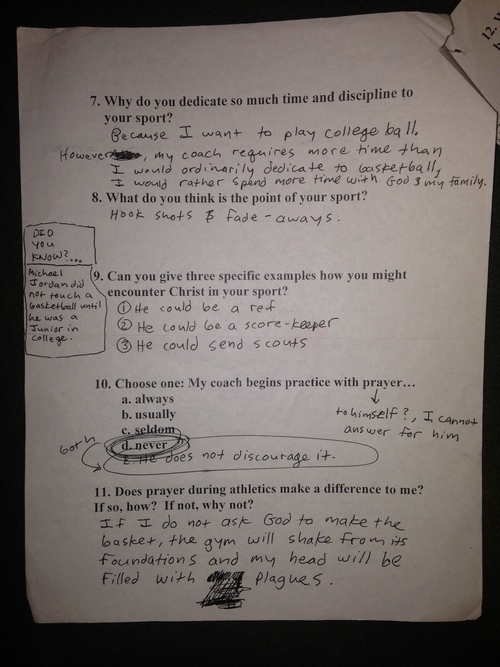 12.
7. Why do you dedicate so much time and discipline to
your sport?
Because I want to play college ball.
However, my coach requires more time than
I would ordinarily dedicate to basketball,
I would rather spend more time with God & my family.
8. What do you think is the point of your sport?
Hook shots & fade-aways.
DID
YOU
KNOW?...
Michael
Jordan did
not touch a
basketball until
he was a
Junior in
college.
9. Can you give three specific examples how you might
encounter Christ in your sport?
① He could be a ref
② He could be a score-keeper
③ He could send scouts
10. Choose one: My coach begins practice with prayer…
a. always
b. usually
c. seldom
d. never
E. He does not discourage it.
both
to himself?, I cannot
answer for him
11. Does prayer during athletics make a difference to me?
If so, how? If not, why not?
If I do not ask God to make the
basket, the gym will shake from its
foundations and my head will be
filled with plagues.